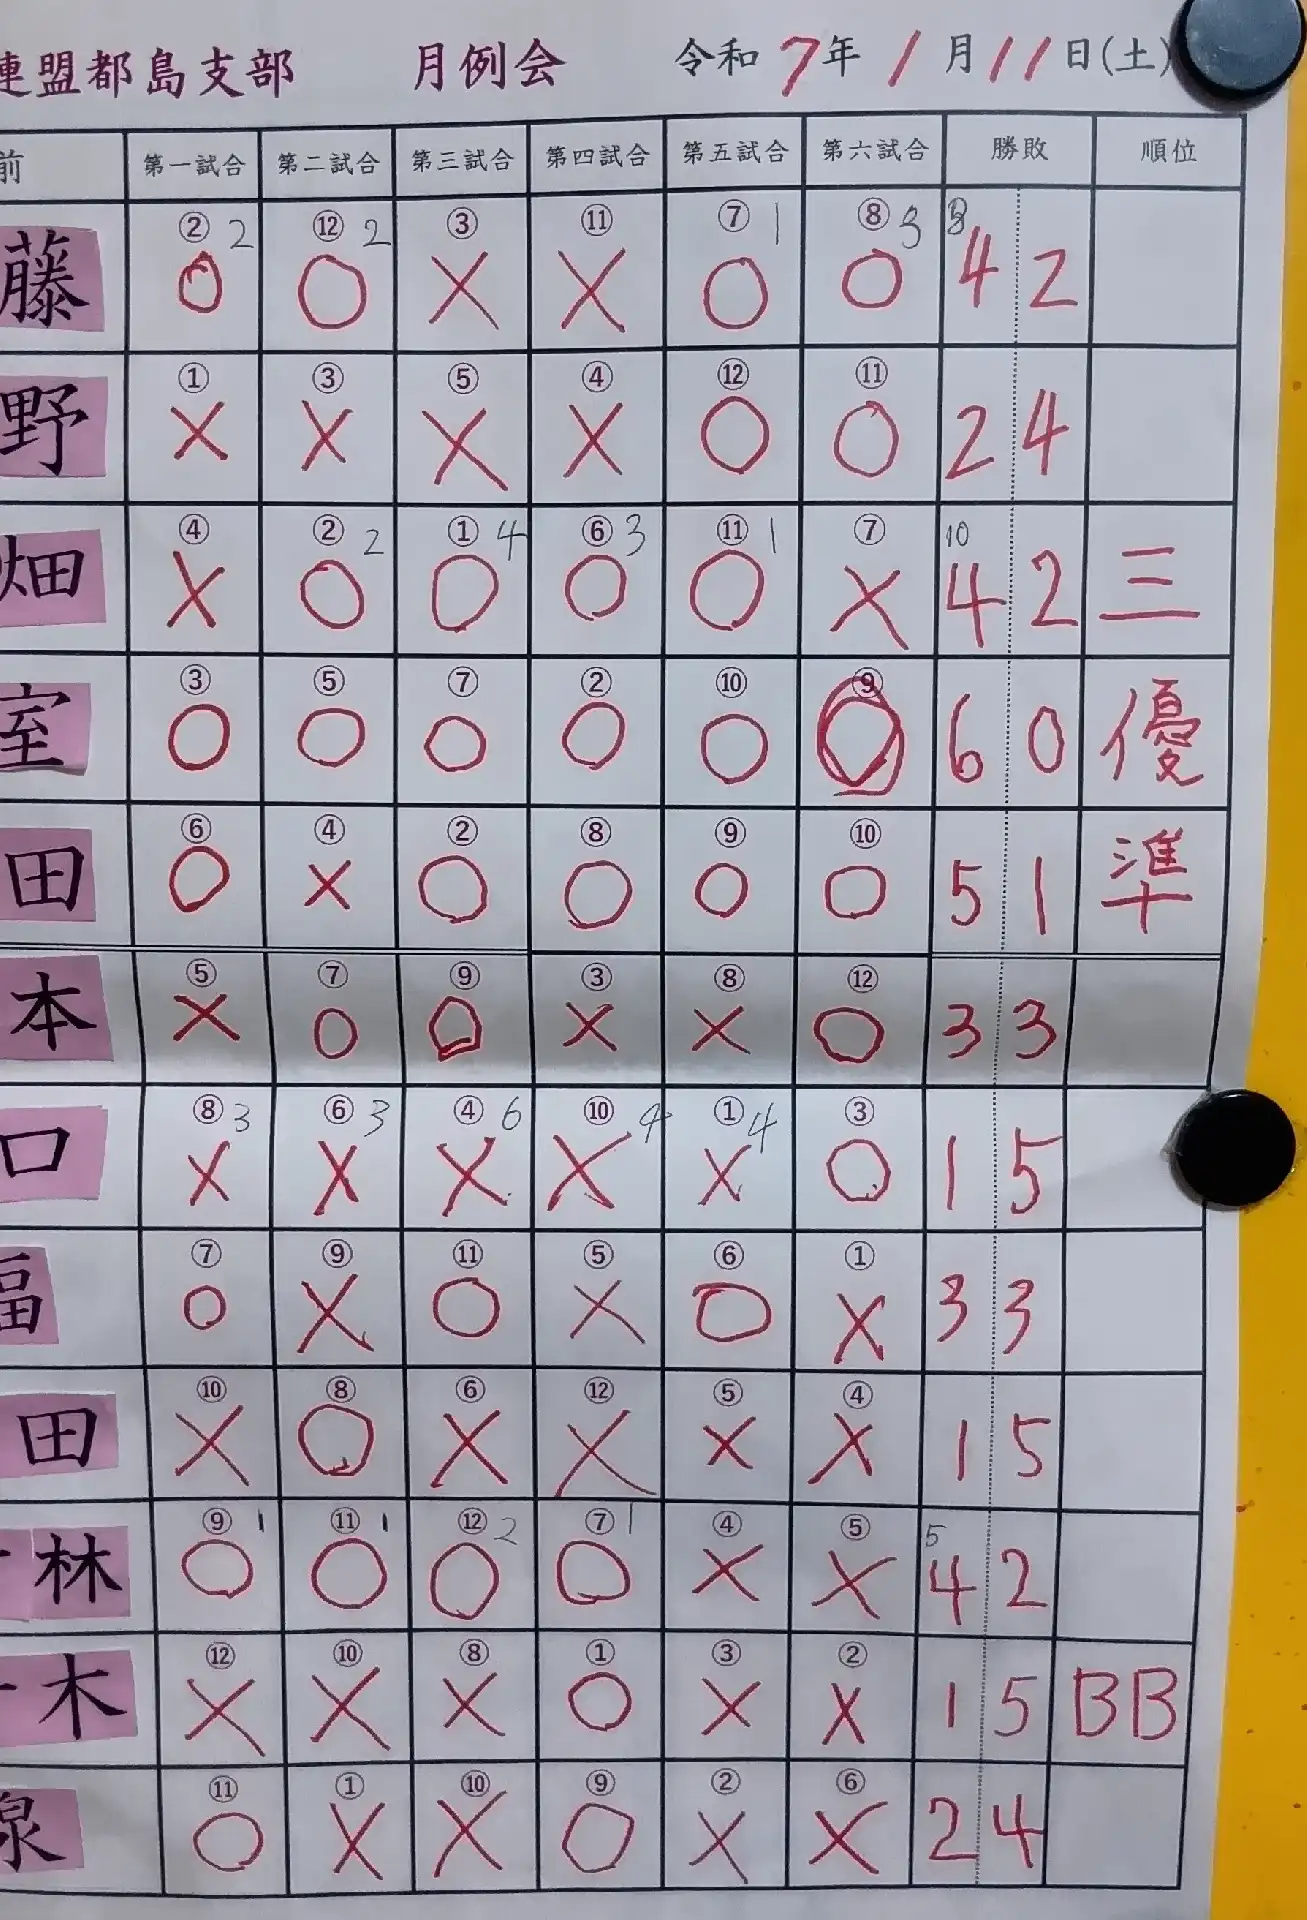 連盟都島支部 月例会 令和 7年 1月 11日(土)
前 第一試合 第二試合 第三試合 第四試合 第五試合 第六試合 勝敗 順位
藤 ②2 ⑫2 ③ ⑪ ⑦1 ⑧3
○ ○ × × ○ ○ 4 2
野 ① ③ ⑤ ④ ⑫ ⑪
× × × × ○ ○ 2 4
畑 ④ ②2 ①4 ⑥3 ⑪1 ⑦ 10
× ○ ○ ○ ○ × 4 2 三
室 ③ ⑤ ⑦ ② ⑩ ⑨
○ ○ ○ ○ ○ ○ 6 0 優
田 ⑥ ④ ② ⑧ ⑨ ⑩
○ × ○ ○ ○ ○ 5 1 準
本 ⑤ ⑦ ⑨ ③ ⑧ ⑫
× ○ ○ × × ○ 3 3
口 ⑧3 ⑥3 ④6 ⑩4 ①4 ③
× × × × × ○ 1 5
福 ⑦ ⑨ ⑪ ⑤ ⑥ ①
○ × ○ × ○ × 3 3
田 ⑩ ⑧ ⑥ ⑫ ⑤ ④
× ○ × × × × 1 5
林 ⑨1 ⑪1 ⑫2 ⑦1 ④ ⑤ 5
○ ○ ○ ○ × × 4 2
木 ⑫ ⑩ ⑧ ① ③ ②
× × × ○ × × 1 5 BB
泉 ⑪ ① ⑩ ⑨ ② ⑥
○ × × ○ × × 2 4